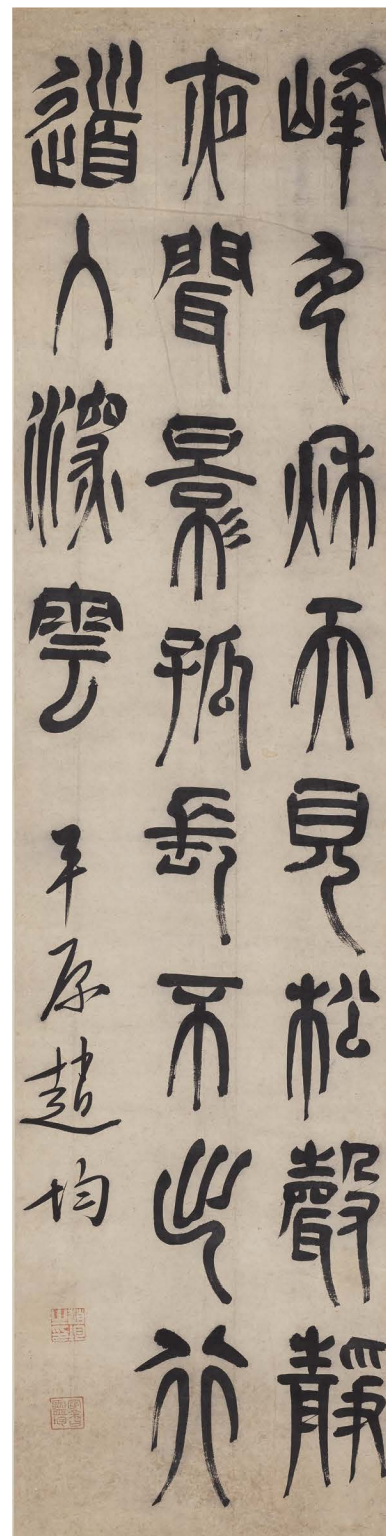 峰色秋天見松聲靜
夜聞影孤長不出行
道入深雲
平原趙均